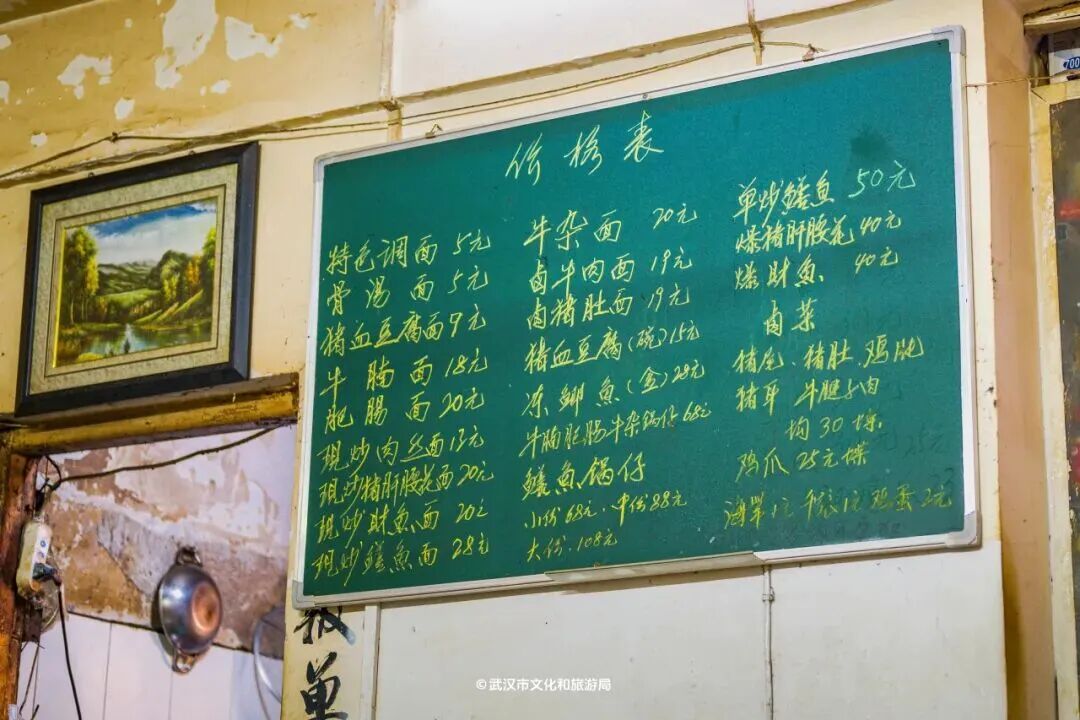 价格表
特色调面 5元
骨汤面 5元
猪血豆腐面 9元
牛腩面 18元
肥肠面 20元
现炒肉丝面 13元
现炒猪肝腰花面 20元
现炒财鱼面 20元
现炒鳝鱼面 28元
牛杂面 20元
卤牛肉面 19元
卤猪肚面 19元
猪血豆腐(碗)15元
冻鲫鱼(盒)28元
牛腩肥肠牛杂锅仔 68元
鳝鱼锅仔
小份68元.中份88元
大份.108元
单炒鳝鱼 50元
爆猪肝腰花 40元
爆财鱼 40元
卤菜
猪尾、猪肚、鸡肫
猪耳 牛腱子肉
均30 碟.
鸡爪 25元碟
海带1元 干张1元 鸡蛋2元
报
单
700
©武汉市文化和旅游局